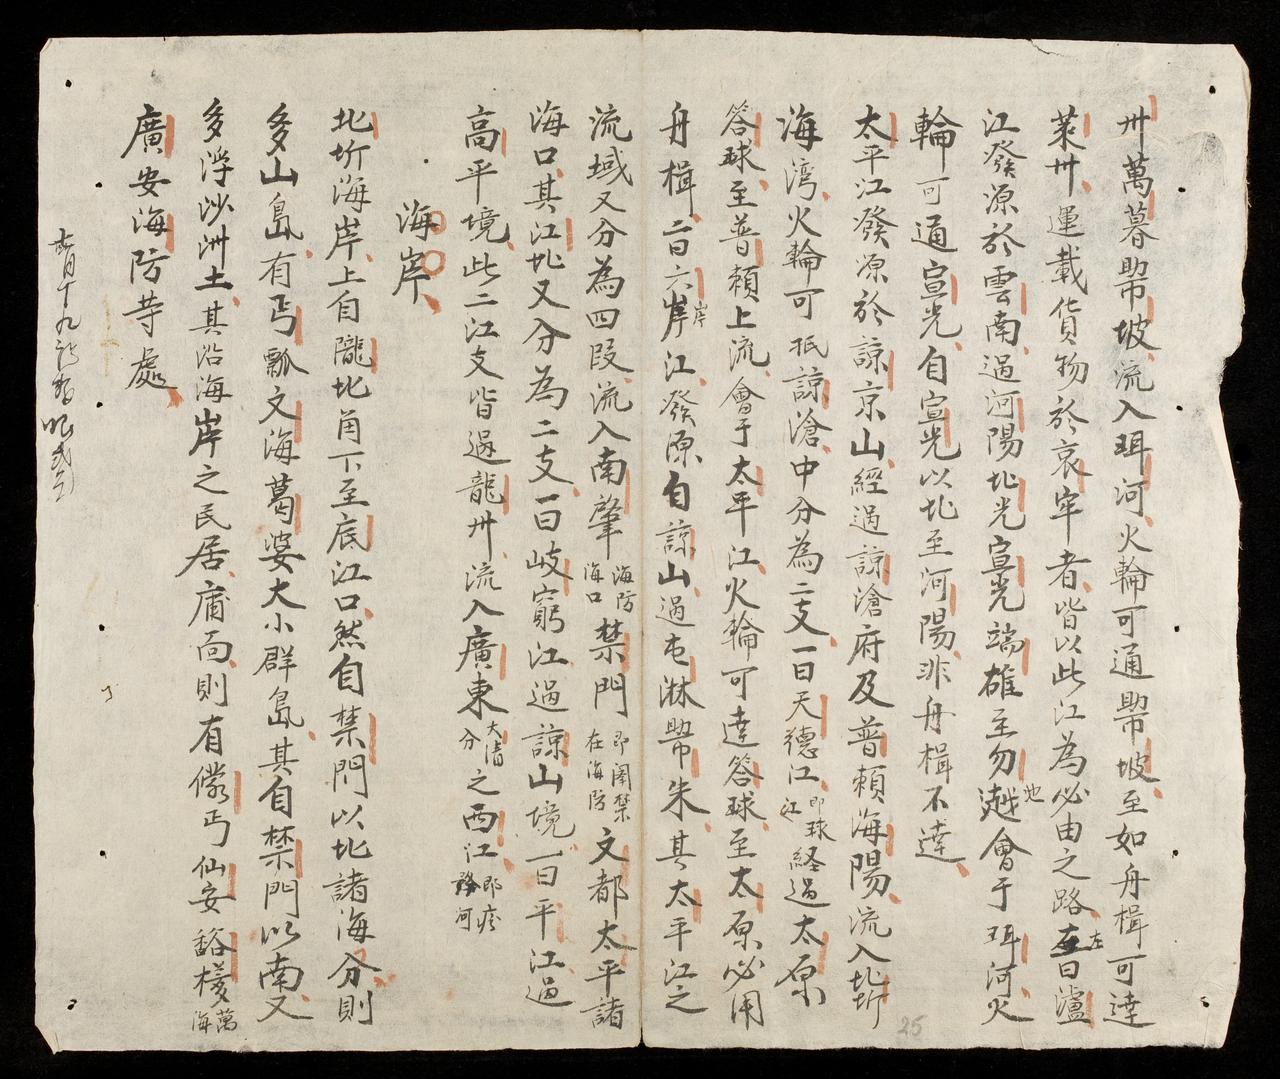 卅萬暮㘝坡流入珥河火輪可通㘝坡至如舟楫可達
萊卅運載貨物於哀牢者皆以此江為必由之路左曰瀘
江發源於雲南過河陽北光宣光端雄至勿越地會于珥河火
輪可通宣光自宣光以北至河陽非舟楫不達
太平江發源於諒京山經過諒滄府及普賴海陽流入北圻
海湾火輪可抵諒滄中分為二支一曰天德江即球江経過太原
答球至普賴上流會于太平江火輪可達答球至太原必用
舟楫二曰六岸江發源自諒山過屯淋㘝朱其太平江之
流域又分為四段流入南肇海防海口禁門即閣禁在海防文都太平諸
海口其江北又分為二支一曰岐窮江過諒山境一曰平江過
高平境此二江支皆過龍卅流入廣東大清分之西江
海岸
北圻海岸上自隴北角下至底江口然自禁門以北諸海分則
多山島有丐瓢文海葛婆大小群島其自禁門以南又
多浮沙洲土其沿海岸之民居庸而則有儆丐仙安萬海
廣安海防等處